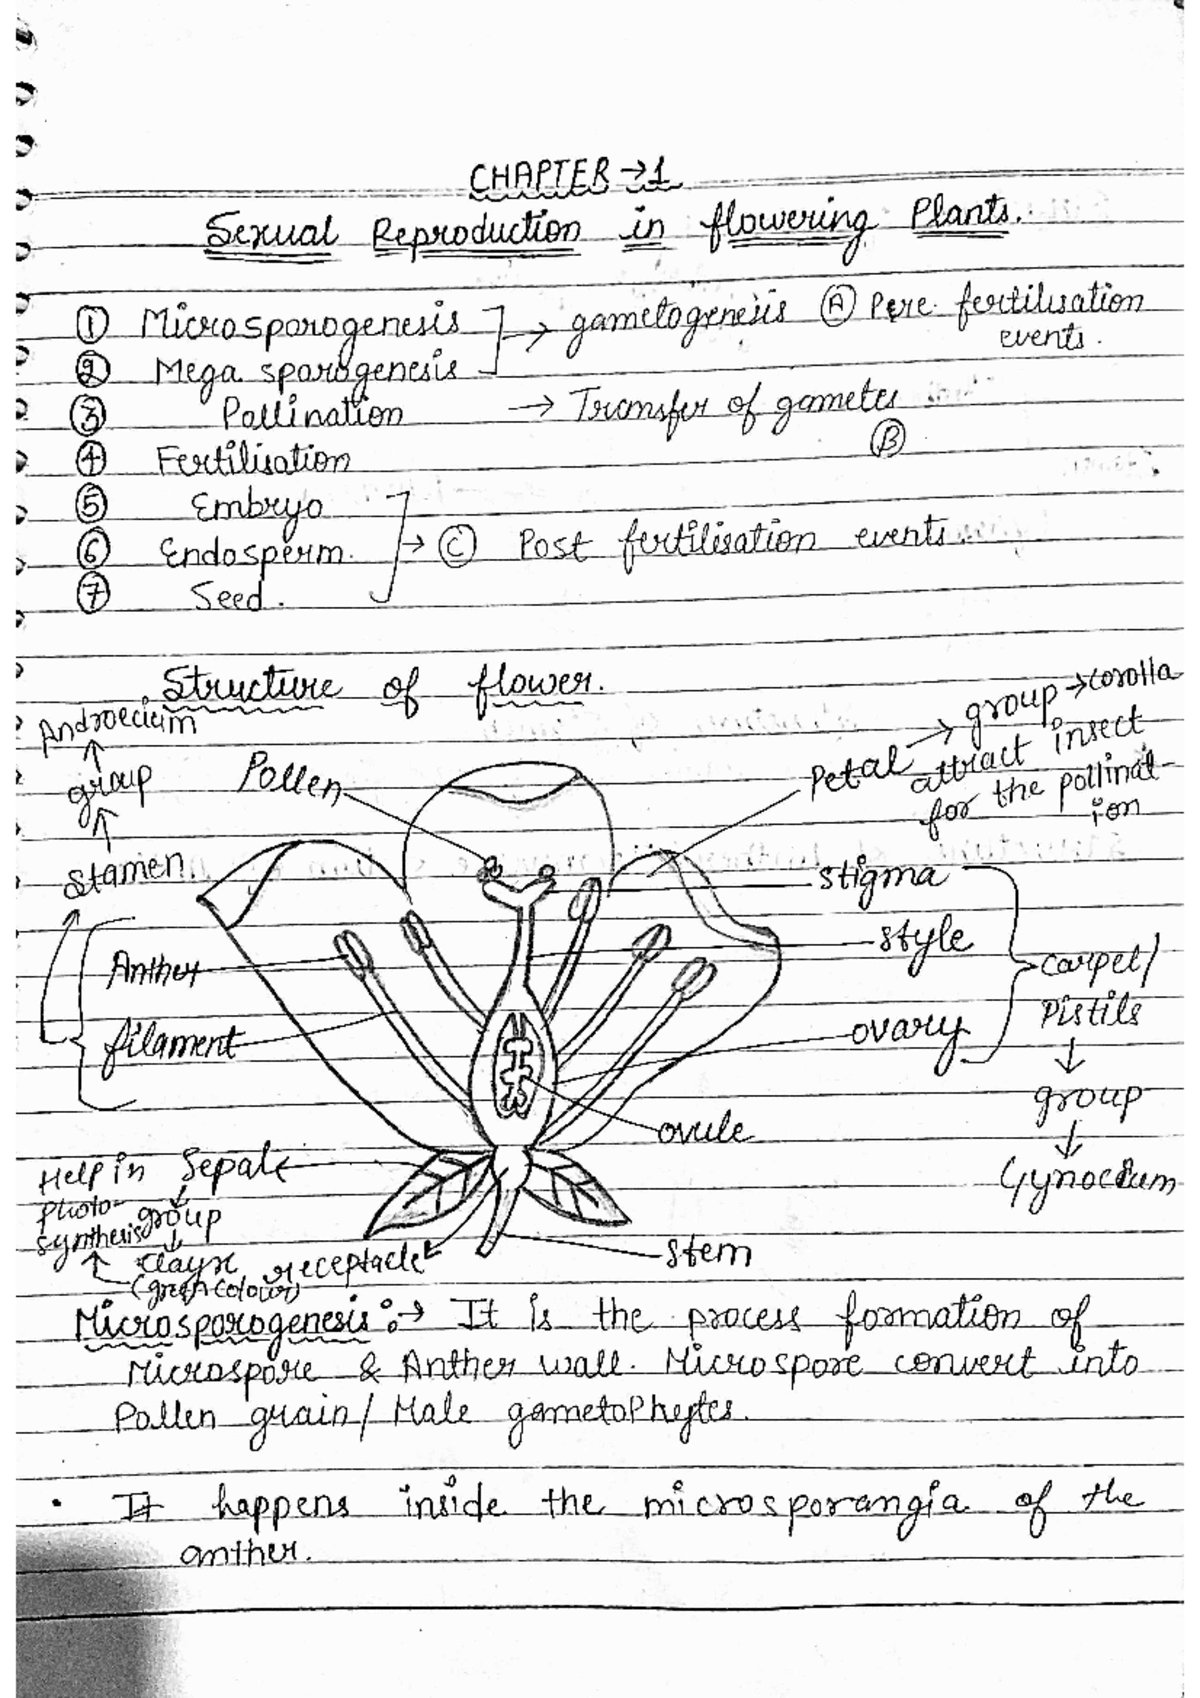 CHAPTER → 1
Sexual Reproduction in flowering Plants.
① Microsporogenesis → gametogenesis Ⓐ Pere fertilisation
events.
② Mega sporogenesis
③ Pollination → Transfer of gametes
Ⓑ
④ Fertilisation
⑤ Embryo
⑥ Endosperm. → Ⓒ Post fertilisation events.
⑦ Seed.
Structure of flower.
Androecium
↑
group
↑
Stamen
Pollen
Petal → group → corolla
attract insect
for the pollinat-
ion
Anther
filament
stigma
style
ovary
carpel/
Pistils
↓
group
↓
Gynocium
ovule
Help in
Photo-
synthesis
↑
Sepal
↓
group
↓
clayx
(green colour)
receptacle
stem
Microsporogenesis :→ It is the process formation of
Microspore & Anther wall. Microspore convert into
Pollen grain/ Male gametophytes.
• It happens inside the microsporangia of the
anther.